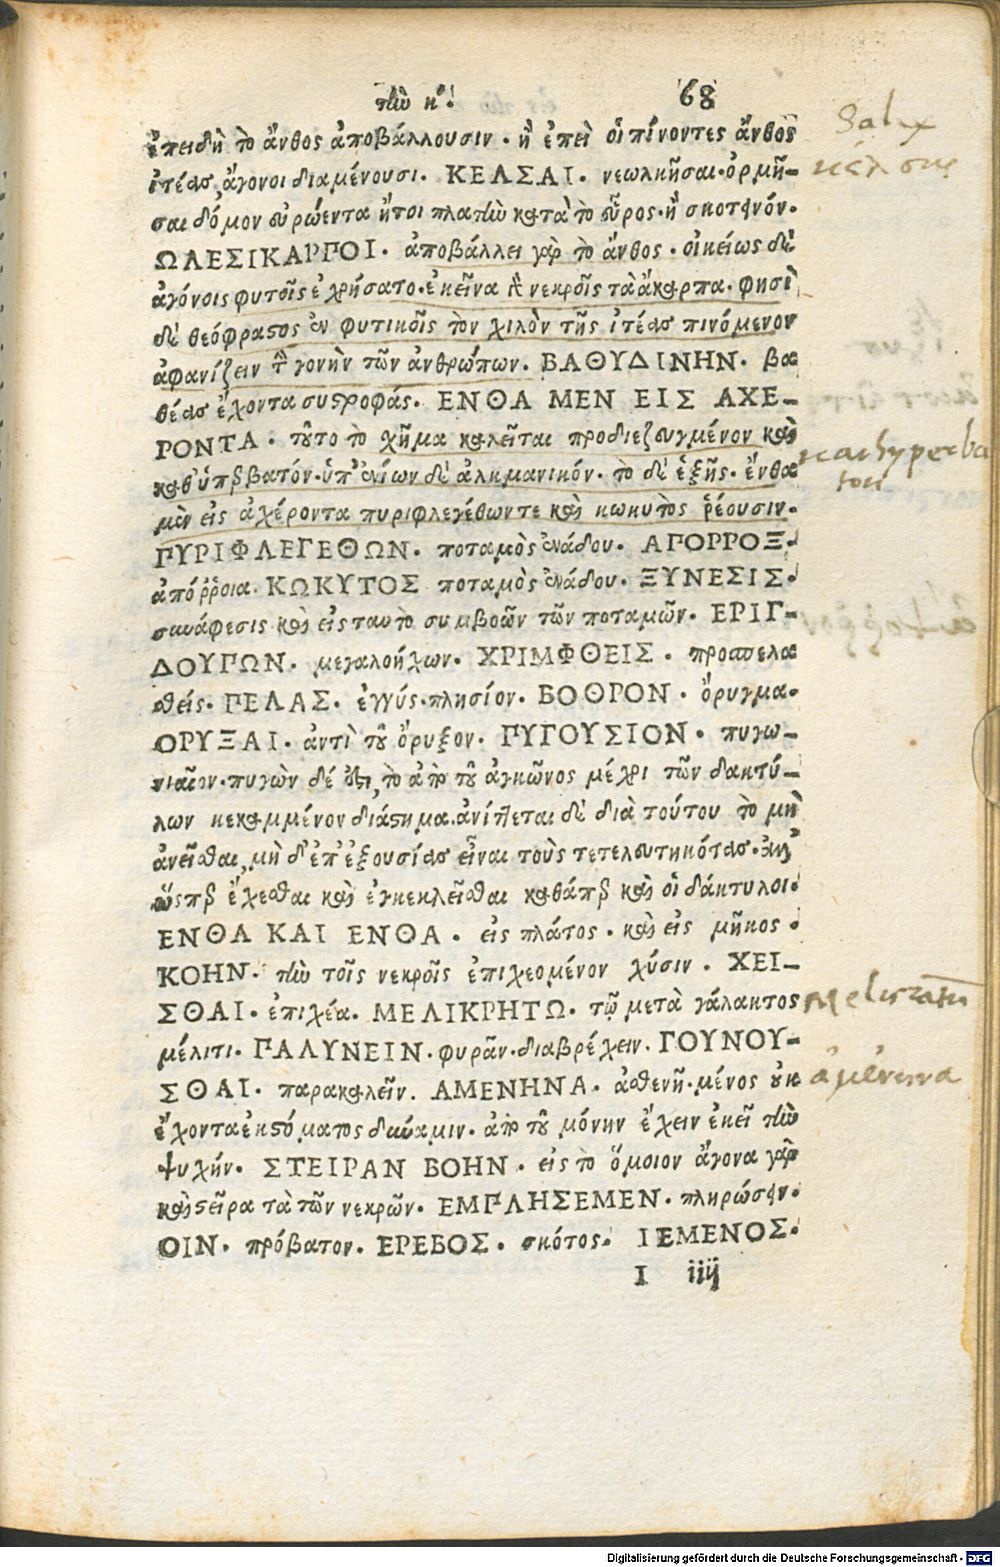 τὴν κ. 68
ἐπειδὴ τὸ ἄνθος ἀποβάλλουσιν. ἢ ἐπεὶ οἱ πίνοντες ἄνθος
ἰτέας, ἄγονοι διαμένουσι. ΚΕΛΣΑΙ. νεωλκῆσαι. ὁρμῆ-
σαι δόμον εὐρώεντα ἤτοι πλατὺν κατὰ τὸ εὖρος. ἢ σκοτεινόν.
ΩΛΕΣΙΚΑΡΠΟΙ. ἀποβάλλει γὰρ τὸ ἄνθος. οἰκείως δὲ
ἀγόνοις φυτοῖς ἐχρήσατο. ἐκεῖνα γὰρ νεκροῖς τὰ ἄκαρπα. φησὶ
δὲ θεόφραστος ἐν φυτικοῖς τὸν χιλὸν τῆς ἰτέας πινόμενον
ἀφανίζειν τὴν γονὴν τῶν ἀνθρώπων. ΒΑΘΥΔΙΝΗΝ. βα
θέας ἔχοντα συστροφάς. ΕΝΘΑ ΜΕΝ ΕΙΣ ΑΧΕ-
ΡΟΝΤΑ. τοῦτο τὸ χῆμα καλεῖται προδιεζευγμένον καὶ
καθ' ὑπερβατόν. ὑπ' ἐνίων δὲ ἀλκμανικόν. τὸ δὲ ἑξῆς. ἔνθα
μὲν εἰς ἀχέροντα πυριφλεγέθωντε καὶ κωκυτὸς ῥέουσιν.
ΠΥΡΙΦΛΕΓΕΘΩΝ. ποταμὸς ἐν ἅδου. ΑΠΟΡΡΟΞ.
ἀπόῤῥοια. ΚΩΚΥΤΟΣ ποταμὸς ἐν ἅδου. ΞΥΝΕΣΙΣ.
συνάφεσις καὶ εἰς ταυτὸ συμβοῶν τῶν ποταμῶν. ΕΡΙΓ-
ΔΟΥΠΩΝ. μεγαλοήχων. ΧΡΙΜΦΘΕΙΣ. προσπελα
σθείς. ΠΕΛΑΣ. ἐγγύς. πλησίον. ΒΟΘΡΟΝ. ὄρυγμα.
ΟΡΥΞΑΙ. ἀντὶ τοῦ ὄρυξον. ΠΥΓΟΥΣΙΟΝ. πυγω-
νιαῖον. πυγὼν δέ ἐστι, τὸ ἀπὸ τοῦ ἀγκῶνος μέχρι τῶν δακτύ-
λων κεκαμμένον διάστημα. αἰνίττεται δὲ διὰ τούτου τὸ μὴ
ἀνεῖσθαι, μὴ δ' ἐπ' ἐξουσίας εἶναι τοὺς τετελευτηκότας.
ὥσπερ ἔχεσθαι καὶ ἐγκεκλεῖσθαι καθάπερ καὶ οἱ δάκτυλοι.
ΕΝΘΑ ΚΑΙ ΕΝΘΑ. εἰς πλάτος. καὶ εἰς μῆκος.
ΚΟΗΝ. τὴν τοῖς νεκροῖς ἐπιχεομένον χύσιν. ΧΕΙ-
ΣΘΑΙ. ἐπιχέα. ΜΕΛΙΚΡΗΤΩ. τῷ μετὰ γάλακτος
μέλιτι. ΠΑΛΥΝΕΙΝ. φυρᾶν. διαβρέχειν. ΓΟΥΝΟΥ-
ΣΘΑΙ. παρακαλεῖν. ΑΜΕΝΗΝΑ. ἀσθενῆ. μένος οὐκ
ἔχοντα ἐκ στόματος δύναμιν. ἀπὸ τοῦ μόνην ἔχειν ἐκεῖ τὴν
ψυχήν. ΣΤΕΙΡΑΝ ΒΟΗΝ. εἰς τὸ ὅμοιον ἄγονα γὰρ
καὶ στεῖρα τὰ τῶν νεκρῶν. ΕΜΠΛΗΣΕΜΕΝ. πληρώσειν.
ΟΙΝ. πρόβατον. ΕΡΕΒΟΣ. σκότος. ΙΕΜΕΝΟΣ.
I iiij
Salix
κέλσαι
κατ hyperba
ton
Melicratū
ἀμένηνα
Digitalisierung gefördert durch die Deutsche Forschungsgemeinschaft - DFG